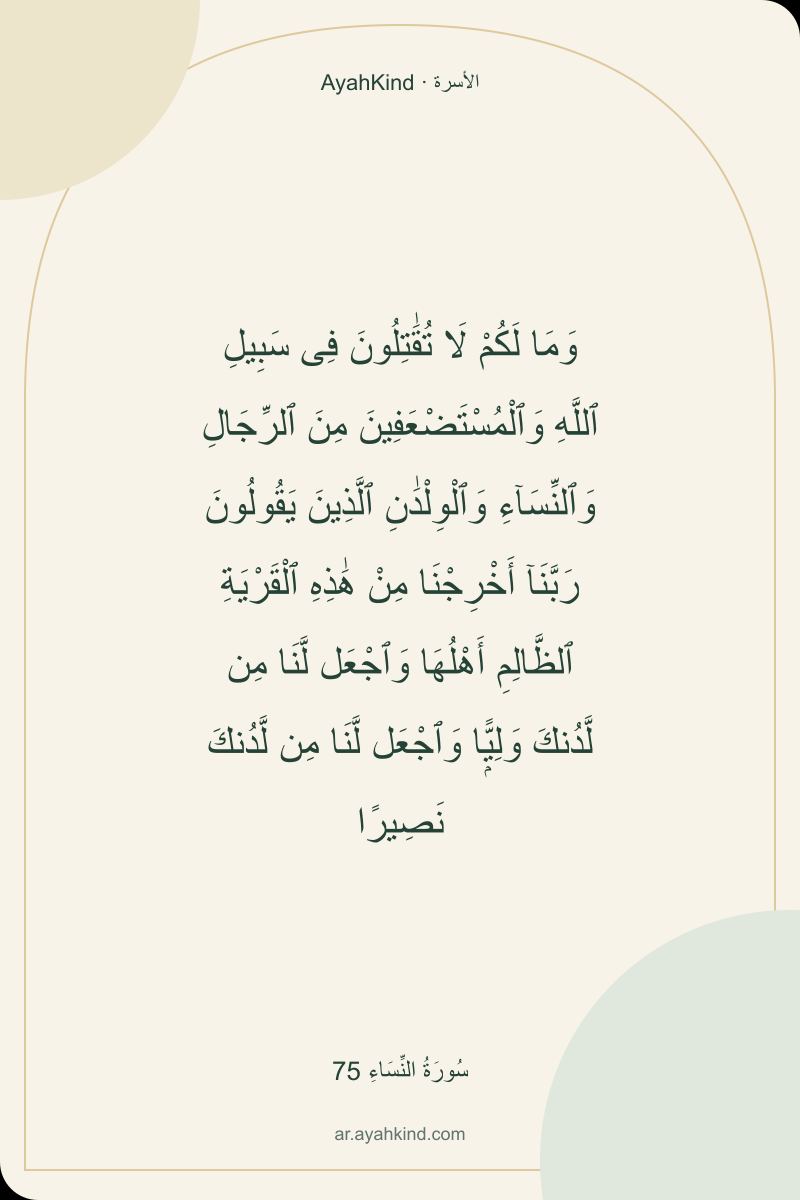 AyahKind · الأسرة
وَمَا لَكُمْ لَا تُقَٰتِلُونَ فِى سَبِيلِ
ٱللَّهِ وَٱلْمُسْتَضْعَفِينَ مِنَ ٱلرِّجَالِ
وَٱلنِّسَآءِ وَٱلْوِلْدَٰنِ ٱلَّذِينَ يَقُولُونَ
رَبَّنَآ أَخْرِجْنَا مِنْ هَٰذِهِ ٱلْقَرْيَةِ
ٱلظَّالِمِ أَهْلُهَا وَٱجْعَل لَّنَا مِن
لَّدُنكَ وَلِيًّۭا وَٱجْعَل لَّنَا مِن لَّدُنكَ
نَصِيرًا
سُورَةُ النِّسَاءِ 75
ar.ayahkind.com